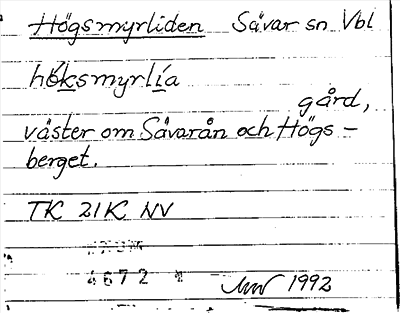 Högsmyrliden Sävar sn Vbl
hö́ksmyrlía
gård,
väster om Sävarån och Högs-
berget.
TK 21K NV
4672
1992